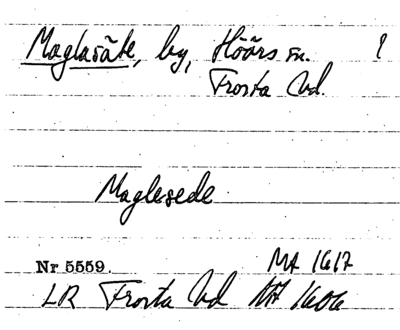 Maglasäte, by, Höörs sn. ?
Frosta hd.
Maglesede
Nr 5559. MA 1617
LR Frosta hd 1606